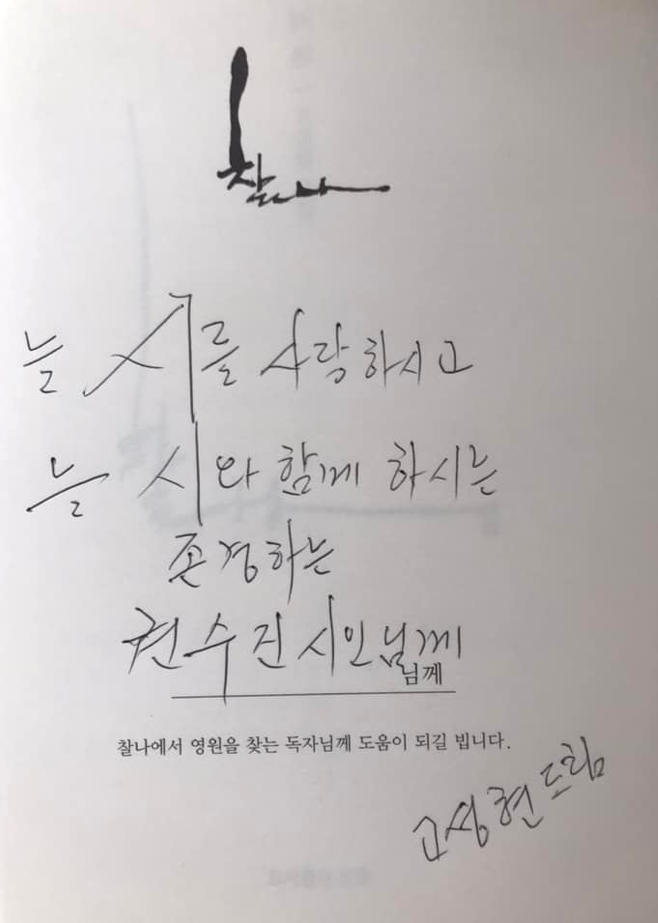 찰나
늘 시를 사랑하시고
늘 시와 함께 하시는
존경하는
권수진 시인님께
님께
찰나에서 영원을 찾는 독자님께 도움이 되길 빕니다.
고성현 드림